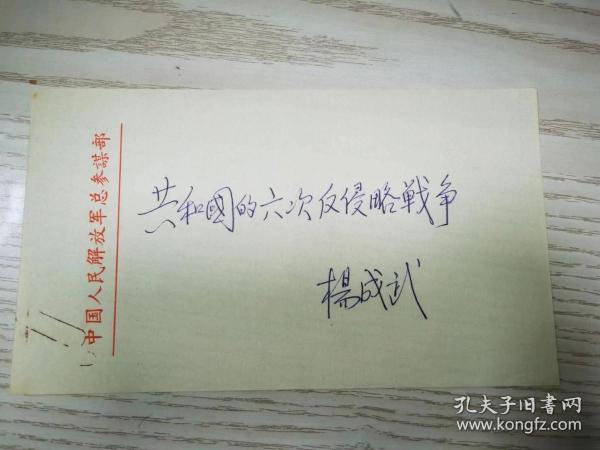 中国人民解放军总参谋部
共和國的六次反侵略戰争
楊成武
孔夫子旧書网
www.kongfz.com